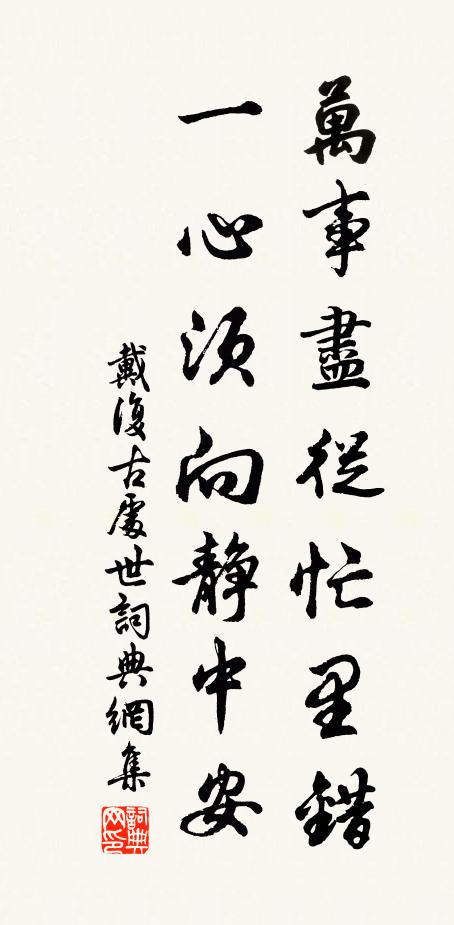 萬事盡從忙里錯
一心須向静中安
戴復古處世詞典網集
詞典网印